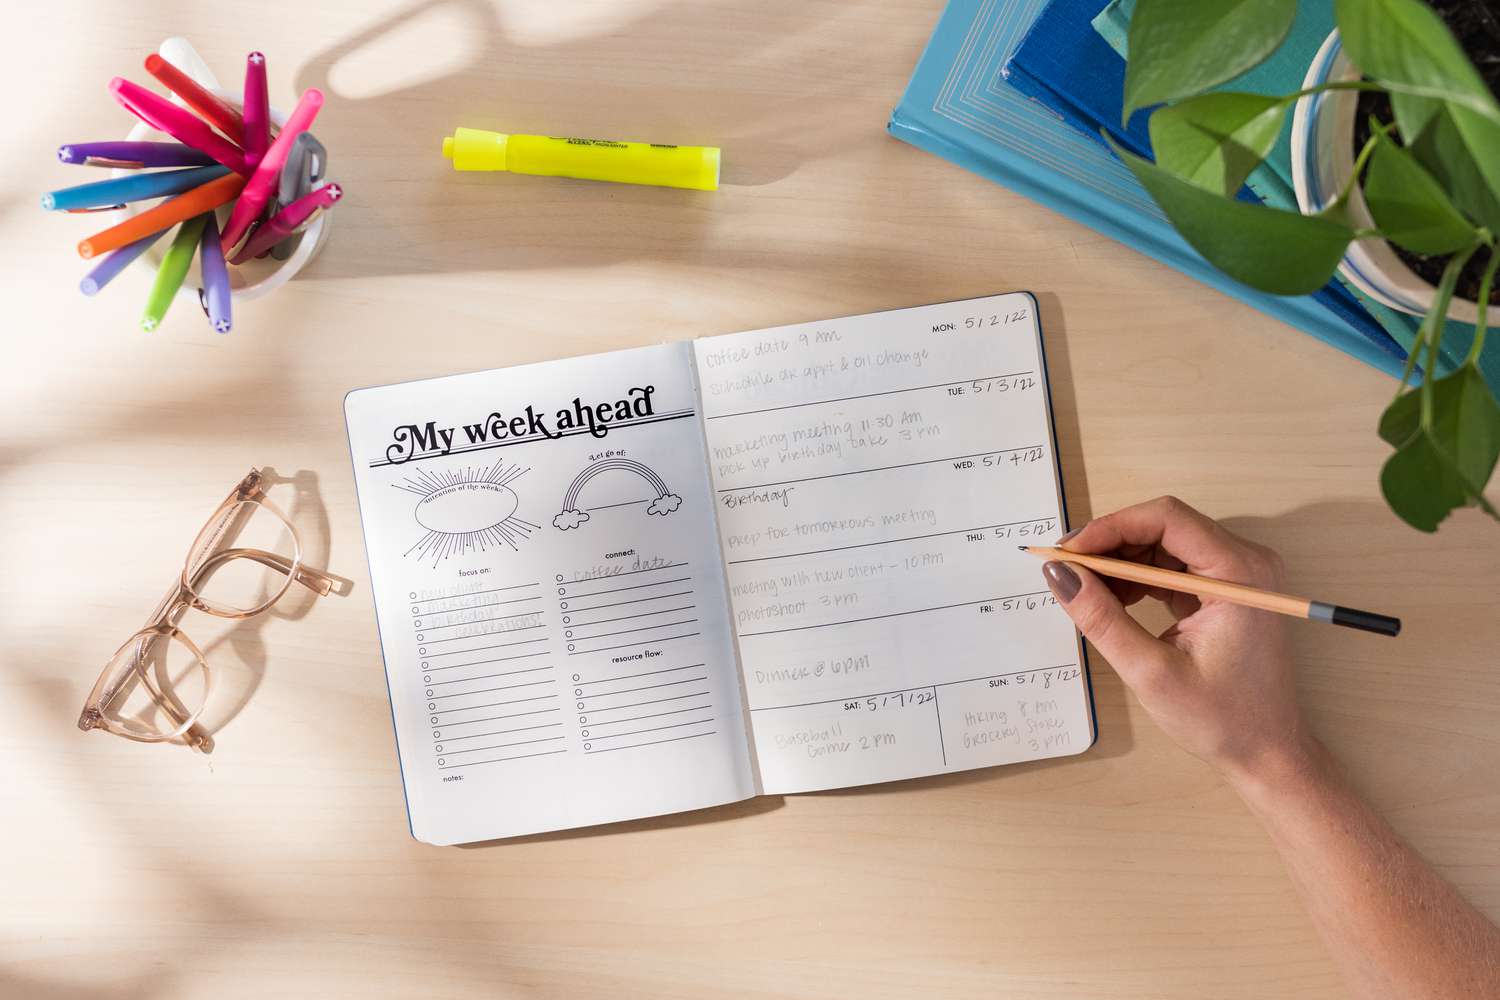 HIGHLIGHTER
My week ahead
intention of the week:
Let go of:
focus on:
new client
marketing
birthday
celebrations!
connect:
coffee date
resource flow:
notes:
MON: 5/2/22
coffee date 9 AM
schedule dr appt & oil change
TUE: 5/3/22
marketing meeting 11:30 AM
pick up birthday cake 3 pm
WED: 5/4/22
Birthday
prep for tomorrows meeting
THU: 5/5/22
meeting with new client - 10 AM
photoshoot 3 pm
FRI: 5/6/2
Dinner @ 6pm
SAT: 5/7/22
Baseball
Game 2 pm
SUN: 5/8/22
Hiking 8 AM
Grocery Store
3 pm